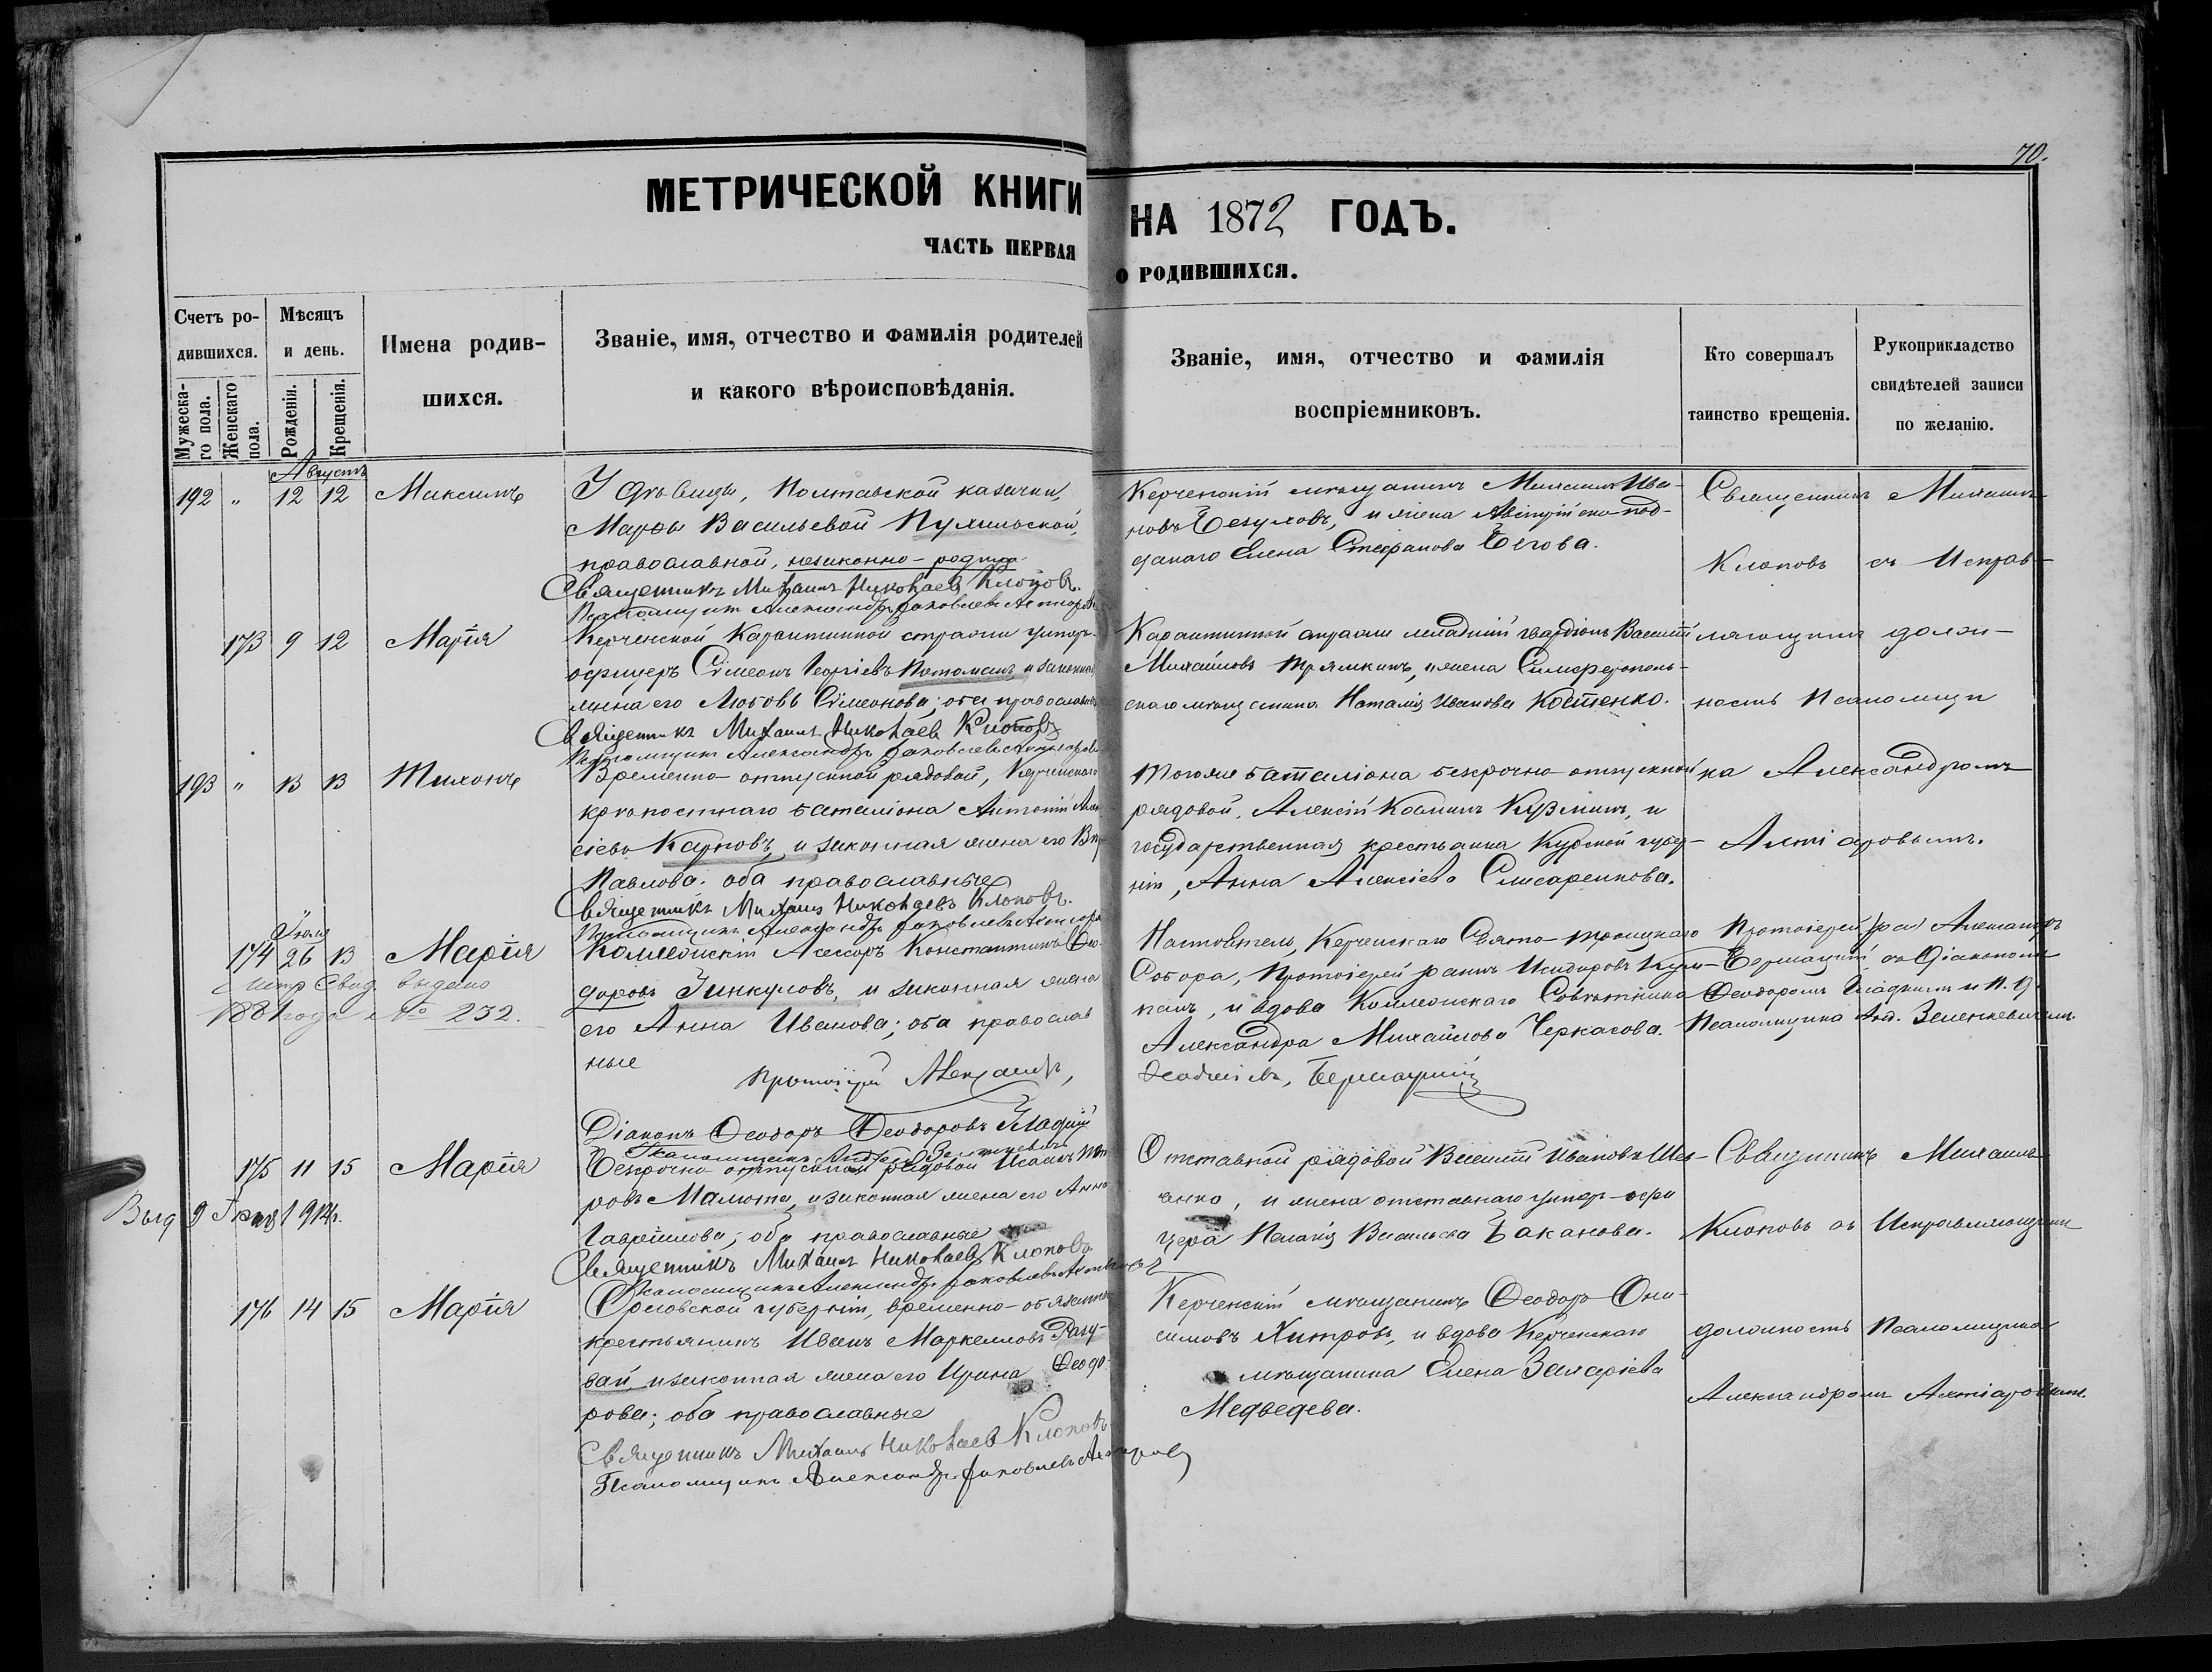 70.
МЕТРИЧЕСКОЙ КНИГИ НА 1872 ГОДЪ.
ЧАСТЬ ПЕРВАЯ О РОДИВШИХСЯ.
Счетъ ро-
дившихся.
Мужеска-
го пола.
Женскаго
пола.
Мѣсяцъ
и день.
Рожденія.
Крещенія.
Имена родив-
шихся.
Званіе, имя, отчество и фамилія родителей
и какого вѣроисповѣданія.
Званіе, имя, отчество и фамилія
воспріемниковъ.
Кто совершалъ
таинство крещенія.
Рукоприкладство
свидѣтелей записи
по желанію.
Августъ
192 " 12 12 Максимъ
У дѣвицы, Полтавской казачки,
Марфы Васильевой
православной, незаконно-рожд
Священникъ Михаилъ Николаевъ Клоповъ.
Псаломщикъ Александръ Яковлевъ
Керченскій мѣщанинъ Михаилъ Ива-
новъ и жена Австрійско-под-
данаго Елена Стефанова
Священникъ Михаилъ
Клоповъ съ Исправ-
173 9 12 Марія
Керченской Карантинной стражи унтеръ-
офицеръ Сімеонъ Георгіевъ Потоман и законная
жена его Любовь Сімеонова; оба православные
Священникъ Михаилъ Николаевъ Клоповъ
Псаломщикъ Александръ Яковлевъ
Карантинной стражи младшій гвардіонъ Василій
Михайловъ и жена Симферополь-
скаго мѣщанина Наталія Иванова Костенко.
ляющимъ долж-
ность Псаломщи
193 " 13 13 Тихонъ
Временно-отпускной рядовой, Керченскаго
крѣпостнаго баталіона Антоній
сіевъ Карповъ, и законная жена его
Павлова. оба православные
Священникъ Михаилъ Николаевъ Клоповъ.
Псаломщикъ Александръ Яковлевъ
Тогоже баталіона безсрочно-отпускной
рядовой, Алексій Косминъ Кузминъ, и
государственная крестьянка Курской губер-
ніи, Анна Алексіева Слисаренкова.
ка Александромъ
Ахтіаровымъ.
Іюля
174 26 13 Марія
Метр. Свид. выдано
1881 года № 232.
Коллежскій Ассесоръ Константинъ Ѳео-
доровъ Гинкуловъ, и законная жена
его Анна Иванова; оба православ
ные
Протоіерей Александръ,
Діаконъ Ѳеодоръ Ѳеодоровъ Гладкій
Настоятель, Керченскаго Свято-Троицкаго
Собора, Протоіерей Іоаннъ Исидоровъ
и вдова Коллежскаго Совѣтника
Александра Михайлова Черкасова.
Протоіерей Александръ
съ Діакономъ
Ѳеодоромъ Гладкимъ и И. д.
Псаломщика Анд. Зеленкевичемъ
175 11 15 Марія
Выд 9 1914г.
Безсрочно-отпускной рядовой Исаакъ
ровъ Малюта, и законная жена его Анна
Гавріилова; оба православные
Священникъ Михаилъ Николаевъ Клоповъ
Псаломщикъ Александръ Яковлевъ
Отставной рядовой Василій Ивановъ Шев-
ченко, и жена отставнаго унтеръ-офи
цера Пелагія Васильева Баканова.
Священникъ Михаилъ
Клоповъ съ Исправляющимъ
176 14 15 Марія
Орловской губерніи, временно-обязанный
крестьянинъ Иванъ Маркелловъ
и законная жена его Ирина Ѳеодо-
рова; оба православные
Священникъ Михаилъ Николаевъ Клоповъ
Псаломщикъ Александръ Яковлевъ Ахтіаровъ
Керченскій мѣщанинъ Ѳеодоръ Они-
симовъ Хитровъ, и вдова Керченскаго
мѣщанина Елена Захаріева
Медведева.
должность Псаломщика
Александромъ Ахтіаровымъ.